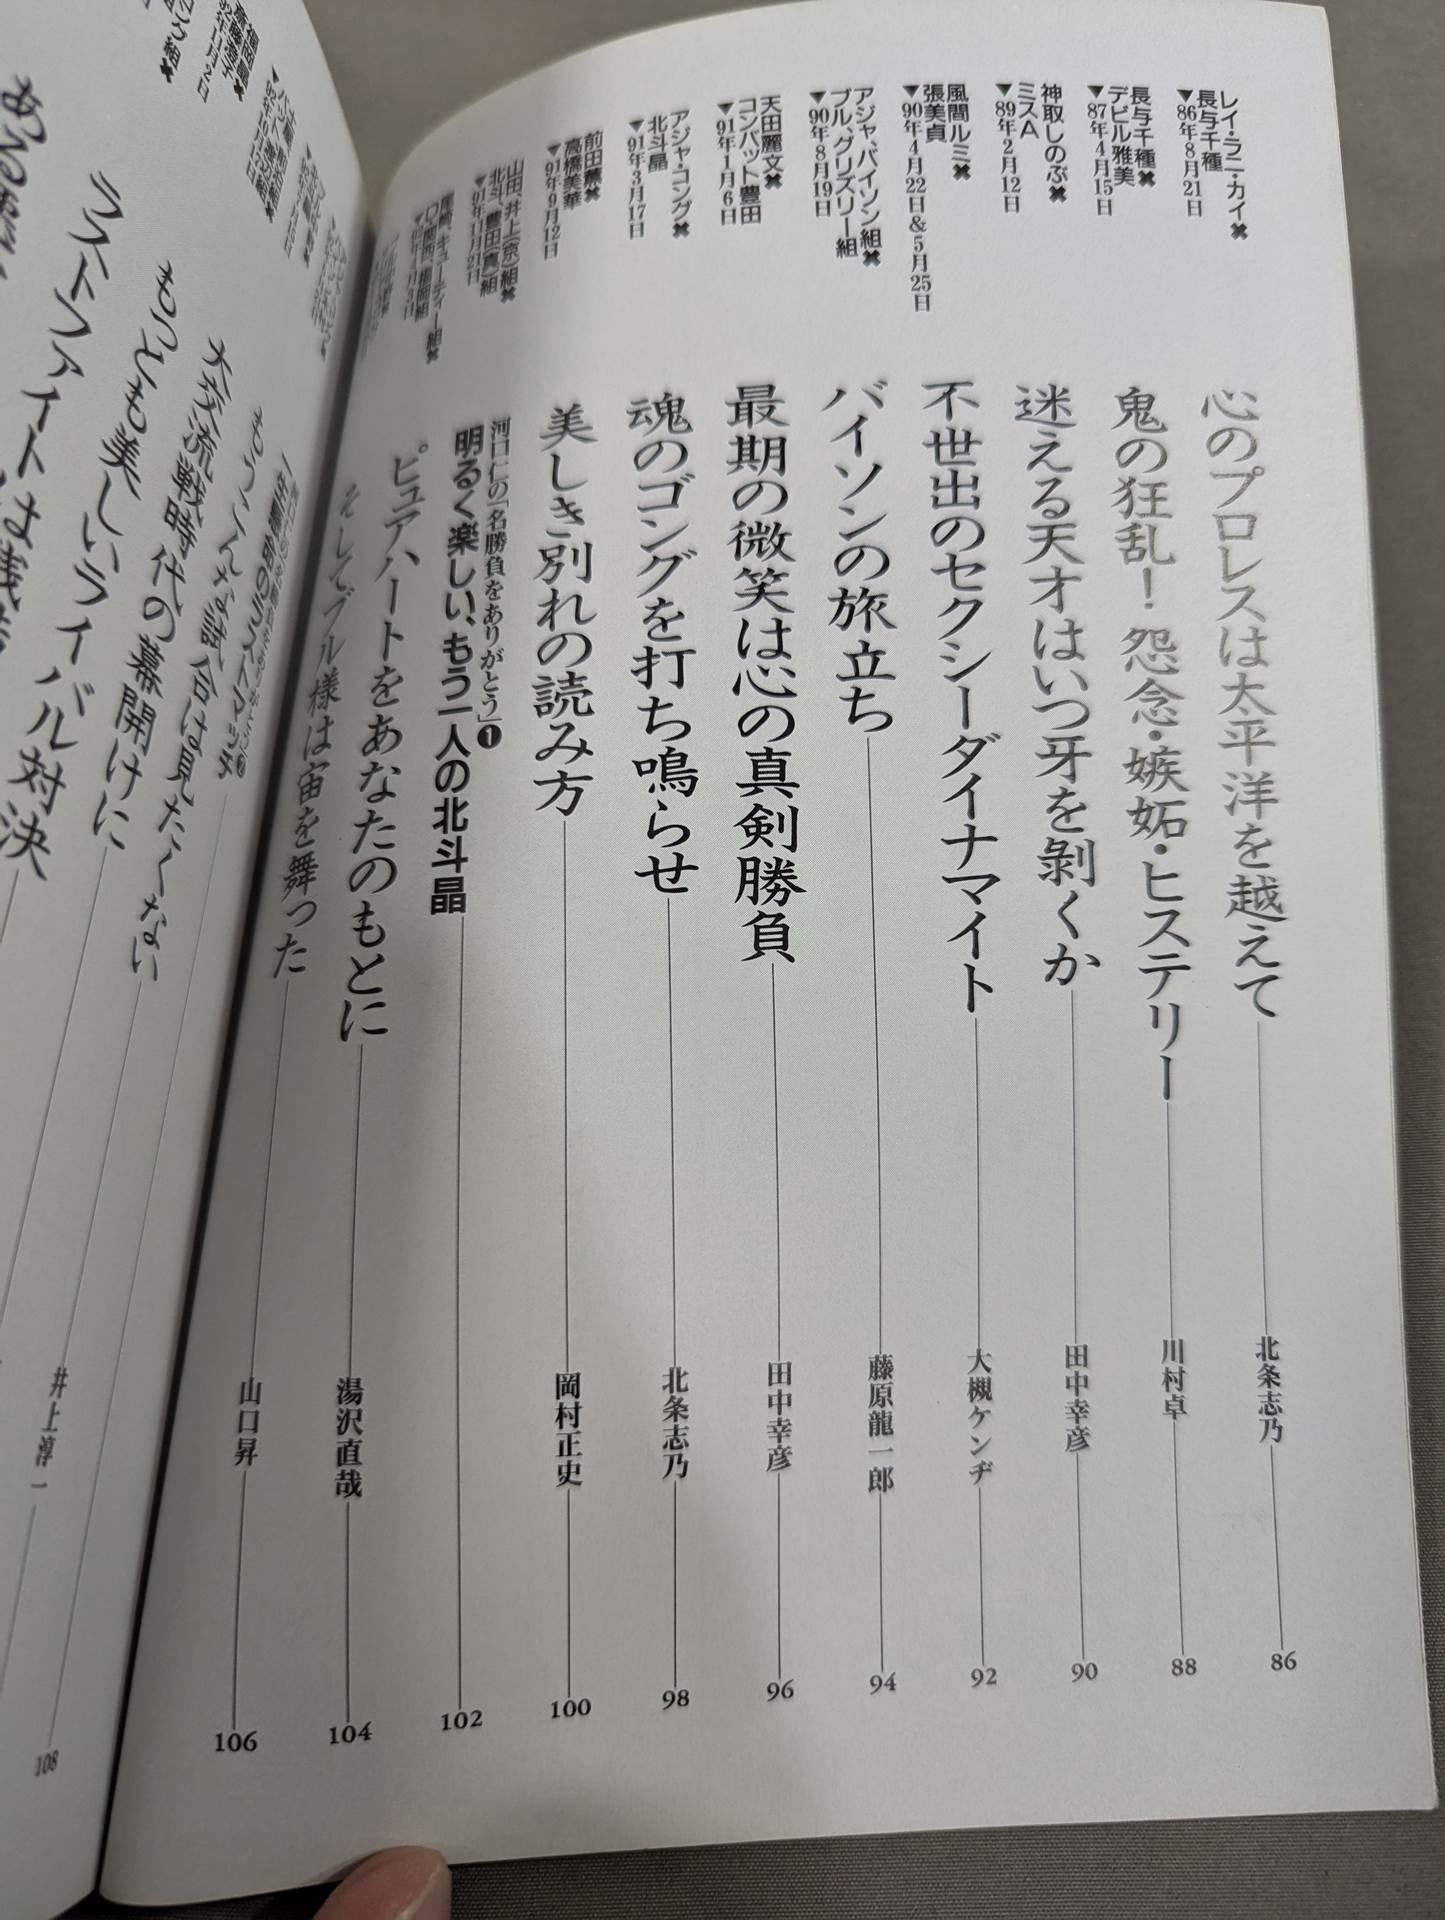 レイ・ラニ・カイ✖
長与千種
▼86年8月21日
心のプロレスは太平洋を越えて
北条志乃
86
長与千種✖
デビル雅美
▼87年4月15日
鬼の狂乱！怨念・嫉妬・ヒステリー
川村卓
88
神取しのぶ✖
ミスA
▼89年2月12日
迷える天才はいつ牙を剝くか
田中幸彦
90
風間ルミ✖
張美貞
▼90年4月22日&5月25日
不世出のセクシーダイナマイト
大槻ケンヂ
92
アジャ、バイソン組✖
ブル、グリズリー組
▼90年8月19日
バイソンの旅立ち
藤原龍一郎
94
天田麗文✖
コンバット豊田
▼91年1月6日
最期の微笑は心の真剣勝負
田中幸彦
96
アジャ・コング✖
北斗晶
▼91年3月17日
魂のゴングを打ち鳴らせ
北条志乃
98
前田薫✖
高橋美華
▼91年9月12日
美しき別れの読み方
岡村正史
100
河口仁の「名勝負をありがとう」❶
明るく楽しい、もう一人の北斗晶
102
山田、井上(京)組✖
北斗、豊田(真)組
▼91年11月21日
ピュアハートをあなたのもとに
湯沢直哉
104
尾崎、キューティー組✖
そしてブル様は宙を舞った
山口昇
106
一生懸命のラストマッチ
もうこんな試合は見たくない
大交流戦時代の幕開けに
もっとも美しいライバル対決
井上淳一
108
ラストファイトは